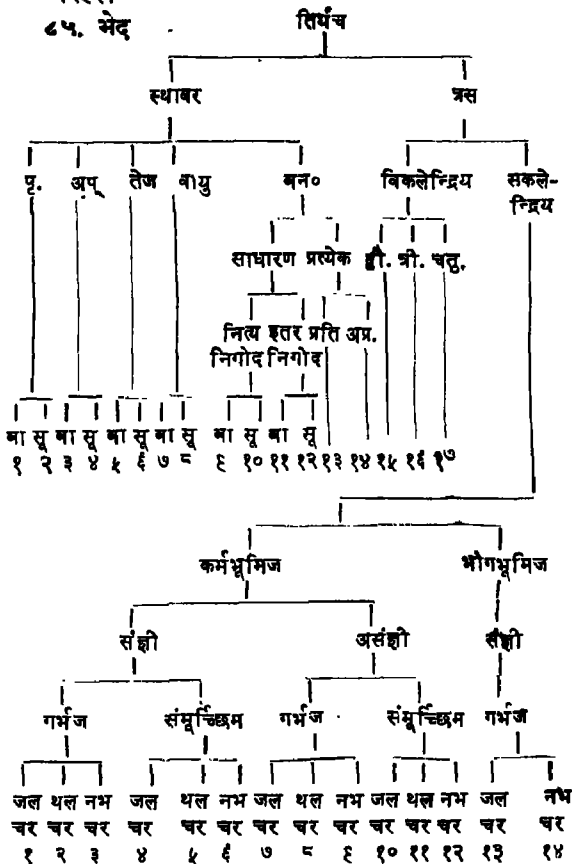 ८५. भेद
तिर्यंच
स्थावर त्रस
पृ. अप् तेज वायु वन० विकलेन्द्रिय सकले-
न्द्रिय
साधारण प्रत्येक द्वी. त्री. चतु.
नित्य इतर प्रति अप्र.
निगोद निगोद
बा सू बा सू बा सू बा सू बा सू बा सू
१ २ ३ ४ ५ ६ ७ ८ ९ १० ११ १२ १३ १४ १५ १६ १७
कर्मभूमिज भोगभूमिज
संज्ञी असंज्ञी संज्ञी
गर्भज संमूर्च्छिम गर्भज संमूर्च्छिम गर्भज
जल थल नभ जल थल नभ जल थल नभ जल थल नभ जल नभ
चर चर चर चर चर चर चर चर चर चर चर चर चर चर
१ २ ३ ४ ५ ६ ७ ८ ९ १० ११ १२ १३ १४